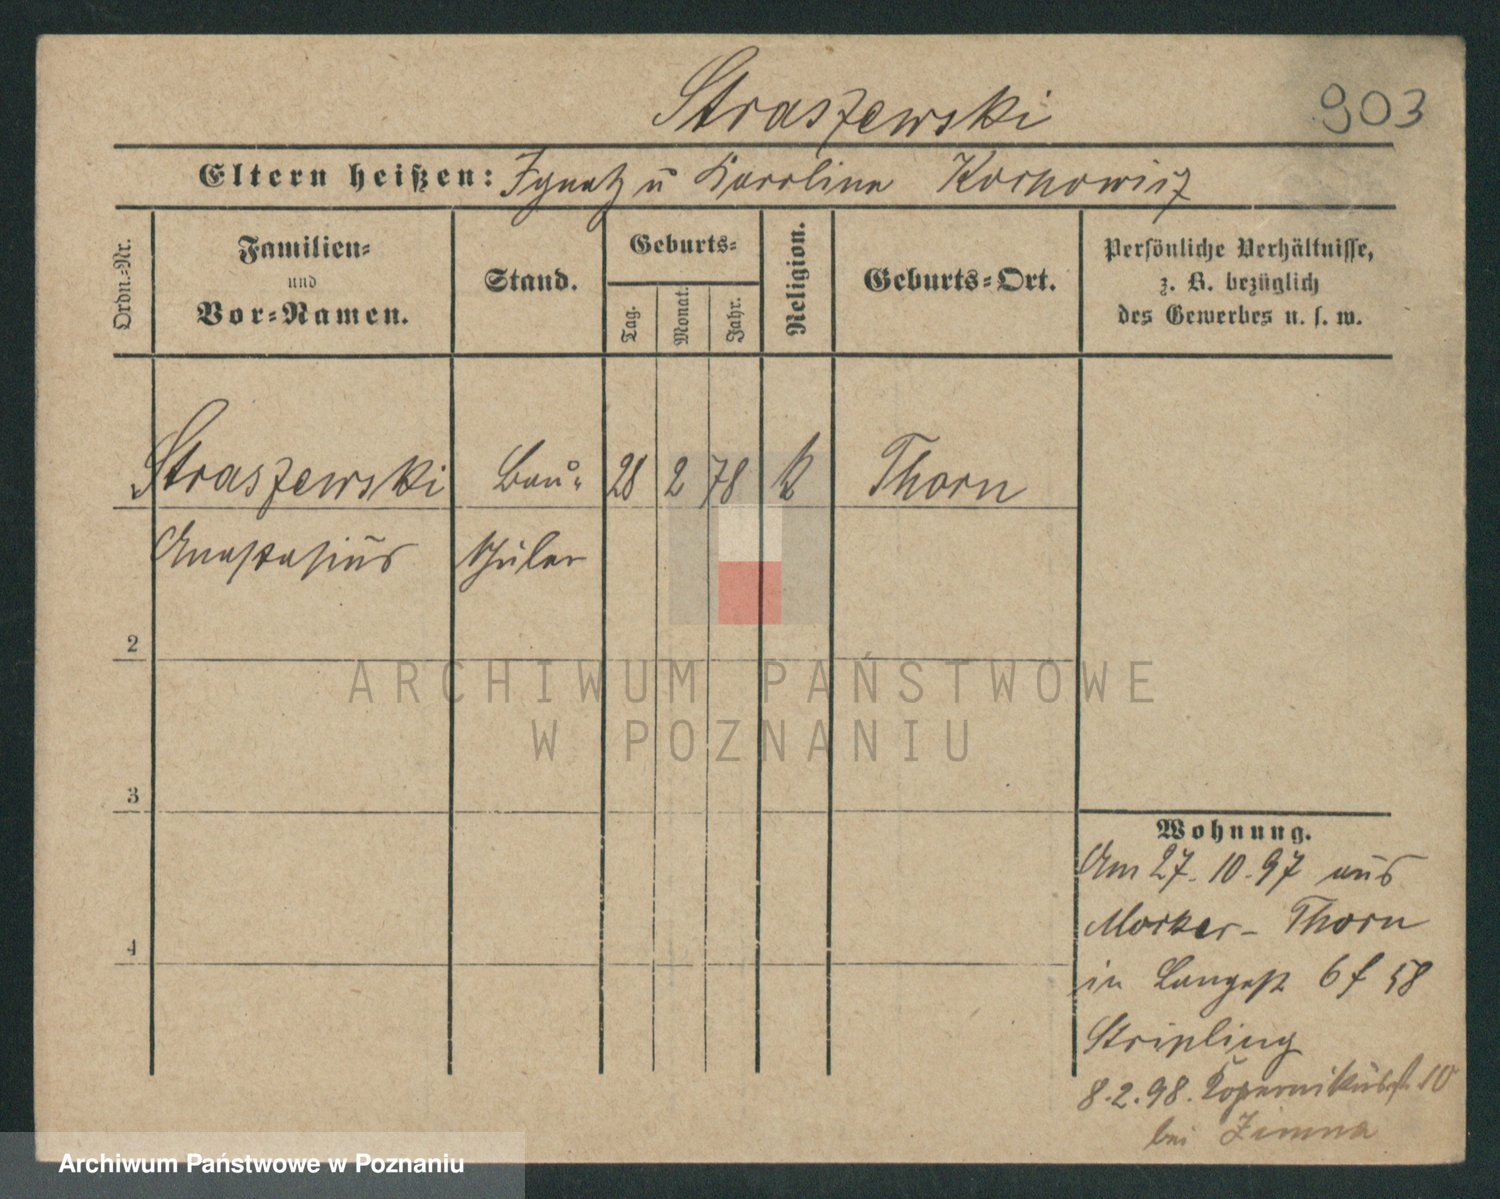 Straszewski 903
Eltern heißen: Ignatz u Karoline Kornowicz
Ordn.-Nr.
Familien-
und
Vor-Namen.
Stand.
Geburts-
Tag.
Monat.
Jahr.
Religion.
Geburts-Ort.
Persönliche Verhältnisse,
z. B. bezüglich
des Gewerbes u. s. w.
Straszewski Bau- 28 2 78 k Thorn
Anastasius schüler
2
3
4
Wohnung.
Am 27.10.97 aus
Mocker-Thorn
in Langestr 6 f 58
Stripling
8.2.98. Kopernikusstr. 10
bei Zimna
ARCHIWUM PAŃSTWOWE
W POZNANIU
Archiwum Państwowe w Poznaniu